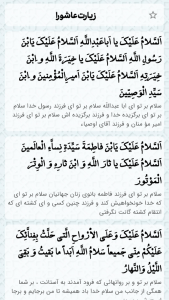 زیارت عاشورا
اَلسَّلامُ عَلَیْکَ یا اَباعَبْدِاللَّهِ اَلسَّلامُ عَلَیْکَ یَابْنَ
رَسُولِ اللَّهِ اَلسَّلامُ عَلَیْکَ یا خِیَرَةَ اللَّهِ و َابْنَ
خِیَرَتِهِ اَلسَّلامُ عَلَیْکَ یَابْنَ اَمیرِالْمُؤْمِنینَ و َابْنَ
سَیِّدِ الْوَصِیّینَ
سلام بر تو ای ابا عبدالله سلام بر تو ای فرزند رسول خدا سلام
بر تو ای برگزیده خدا و فرزند برگزیده اش سلام بر تو ای فرزند
امیر مؤ منان و فرزند آقای اوصیاء
اَلسَّلامُ عَلَیْکَ یَابْنَ فاطِمَةَ سَیِّدَةِ نِساَّءِ الْعالَمینَ
اَلسَّلامُ عَلَیْکَ یا ثارَ اللَّهِ و َابْنَ ثارِهِ و َالْوِتْرَ
الْمَوْتُورَ
سلام بر تو ای فرزند فاطمه بانوی زنان جهانیان سلام بر تو ای
که خدا خونخواهیش کند و فرزند چنین کسی و ای کشته ای که
انتقام کشته گانت نگرفتی
اَلسَّلامُ عَلَیْکَ وَعَلَی الاَْرواحِ الَّتی حَلَّتْ بِفِناَّئِکَ
عَلَیْکُمْ مِنّی جَمیعاً سَلامُ اللَّهِ اَبَداً ما بَقیتُ و َبَقِیَ
اللَّیْلُ و َالنَّهارُ
سلام بر تو و بر روانهائی که فرود آمدند به آستانت ، بر شما
همگی از جانب من سلام خدا باد همیشه تا من برجایم و برجا